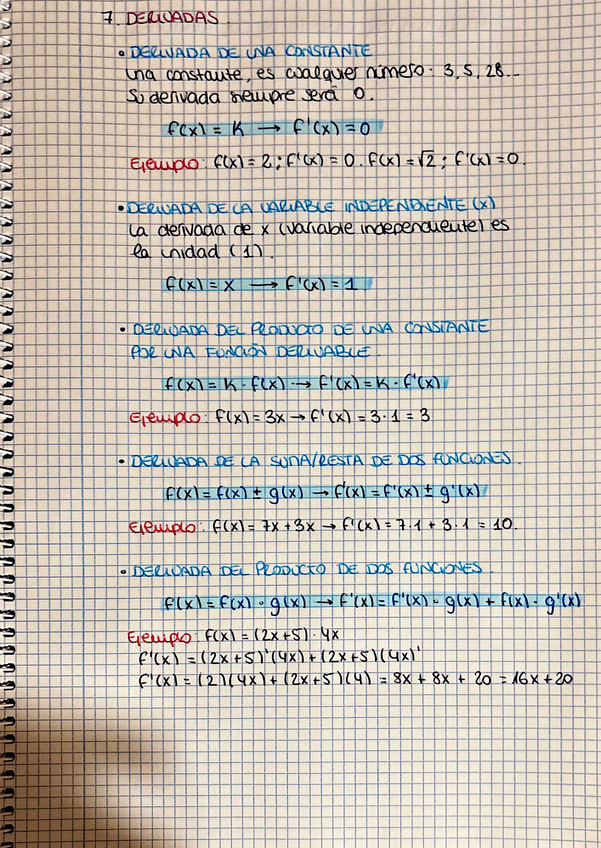 7. DERIVADAS.
• DERIVADA DE UNA CONSTANTE
Una constante, es cualquier número: 3, 5, 28...
Su derivada siempre será 0.
f(x) = K → f'(x) = 0
Ejemplo: f(x) = 2; f'(x) = 0. f(x) = √2; f'(x) = 0.
• DERIVADA DE LA VARIABLE INDEPENDIENTE (x)
La derivada de x (variable independiente) es
la unidad (1).
f(x) = x → f'(x) = 1
• DERIVADA DEL PRODUCTO DE UNA CONSTANTE
POR UNA FUNCIÓN DERIVABLE.
f(x) = K · f(x) → f'(x) = K · f'(x)
Ejemplo: f(x) = 3x → f'(x) = 3·1 = 3
• DERIVADA DE LA SUMA/RESTA DE DOS FUNCIONES.
f(x) = f(x) ± g(x) → f'(x) = f'(x) ± g'(x)
Ejemplo: f(x) = 7x + 3x → f'(x) = 7·1 + 3·1 = 10.
• DERIVADA DEL PRODUCTO DE DOS FUNCIONES.
f(x) = f(x) · g(x) → f'(x) = f'(x) · g(x) + f(x) · g'(x)
Ejemplo: f(x) = (2x+5) · 4x
f'(x) = (2x+5)'(4x) + (2x+5)(4x)'
f'(x) = (2)(4x) + (2x+5)(4) = 8x + 8x + 20 = 16x + 20